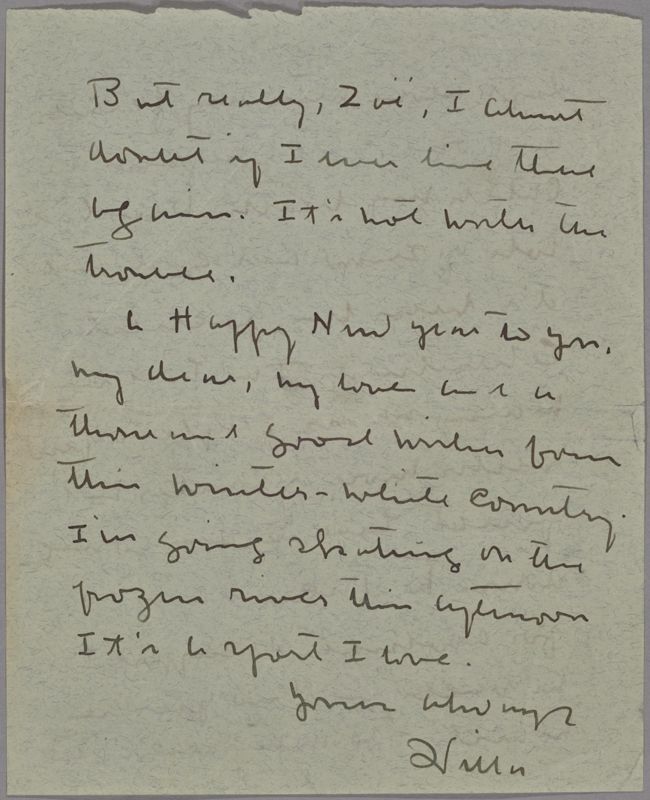 But really, Zoë, I almost
doubt if I ever live there
again. It's not worth the
trouble.
A Happy New year to you,
my dear, my love and a
thousand good wishes from
this winter-white country.
I'm going skating on the
frozen river this afternoon
It's a sport I love.
Yours always
Willa